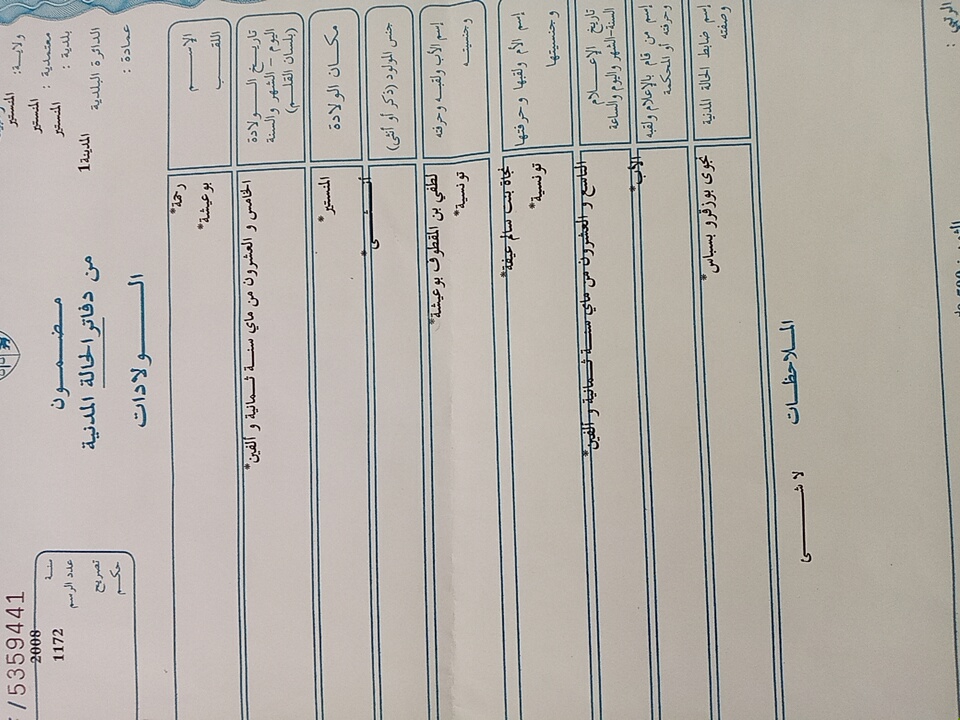 ولاية: المنستير
معتمدية : المنستير
بلدية : المنستير
الدائرة البلدية المدينة 1
عمادة :
مضمون
من دفاتر الحالة المدنية
الولادات
/5359441
سنة 2008
عدد الرسم 1172
تصريح
حكم
الإسم رحمة*
اللقب بوعيشة*
تاريخ الولادة
اليوم - الشهر والسنة
(بلسان القلم)
الخامس و العشرون من ماي سنة ثمانية و ألفين*
مكان الولادة المنستير*
جنس المولود (ذكر أو أنثى) أنثى*
إسم الأب ولقبه وحرفته لطفي بن المقطوف بوعيشة*
وجنسيته تونسية*
إسم الأم ولقبها وحرفتها نجاة بنت سالم عيفة*
وجنسيتها تونسية*
تاريخ الإعلام
السنة-الشهر واليوم والساعة
التاسع و العشرون من ماي سنة ثمانية و ألفين*
إسم من قام بالإعلام ولقبه
وحرفته أو المحكمة
الأب*
إسم ضابط الحالة المدنية
وصفته
نجوى بوزقرو بسباس*
الملاحظات
لا شى